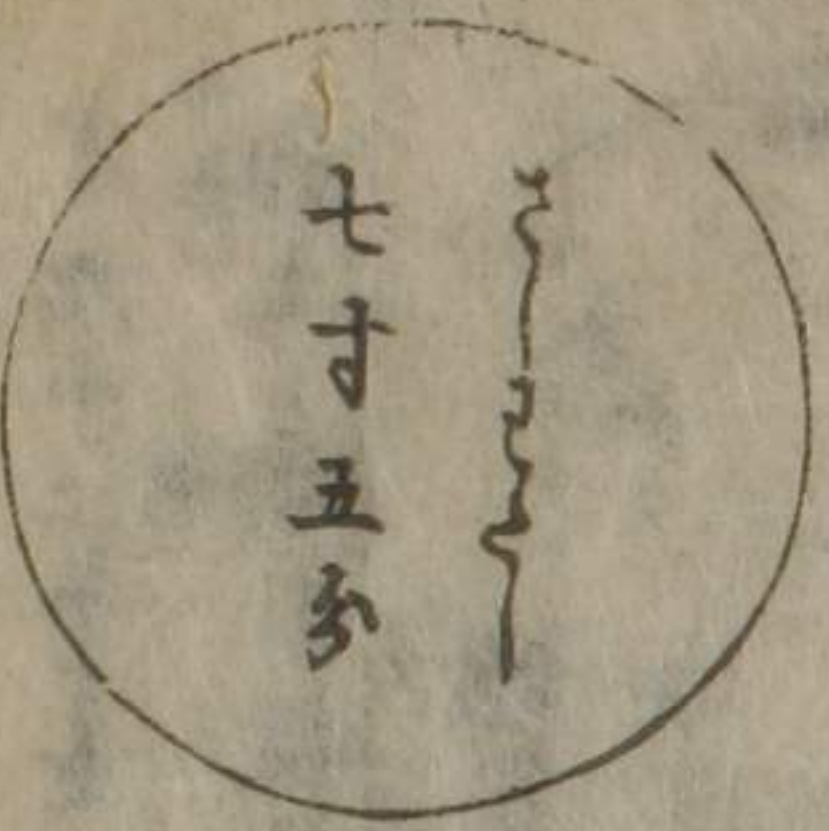 さしわたし
七寸五分